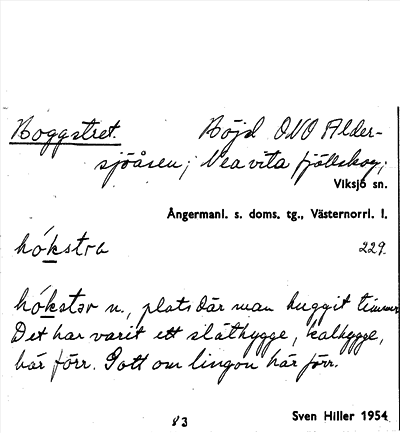 Hoggstret. Höjd ONO Alder-
sjöåsen; Nea vita fjällskog;
Viksjö sn.
Ångermanl. s. doms. tg., Västernorrl. l.
hókstra 229.
hókstər n., plats där man huggit timmer
Det har varit ett slåthygge, kalhygge,
här förr. Gott om lingon här förr.
83 Sven Hiller 1954